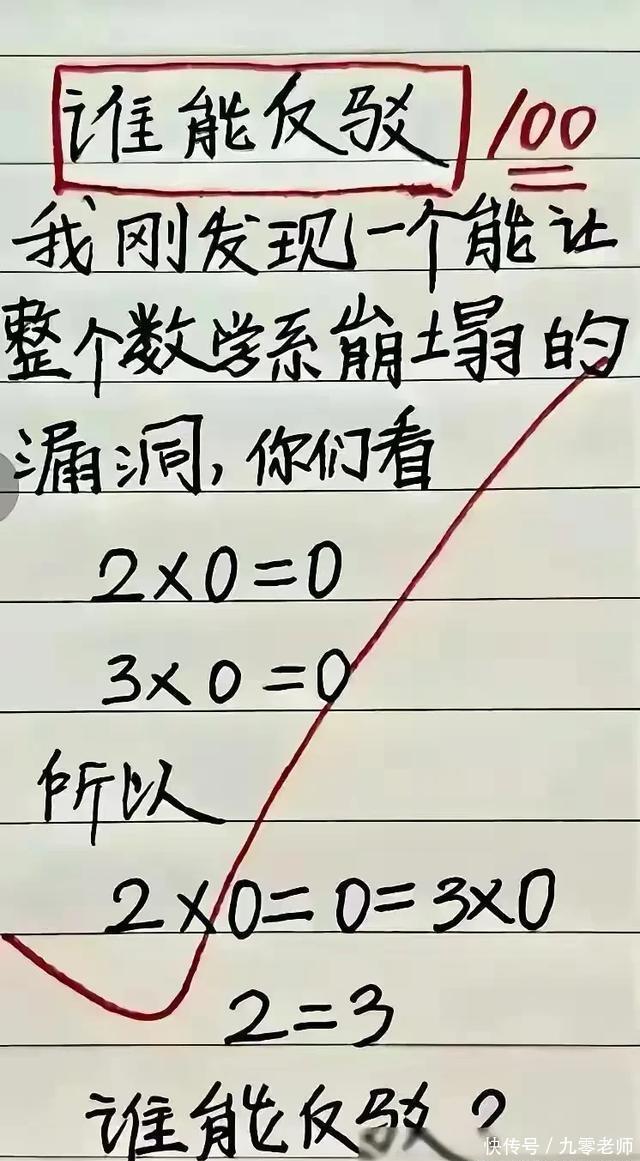 谁能反驳 100
我刚发现一个能让
整个数学系崩塌的
漏洞,你们看
2×0=0
3×0=0
所以
2×0=0=3×0
2=3
谁能反驳?
快传号/九零老师